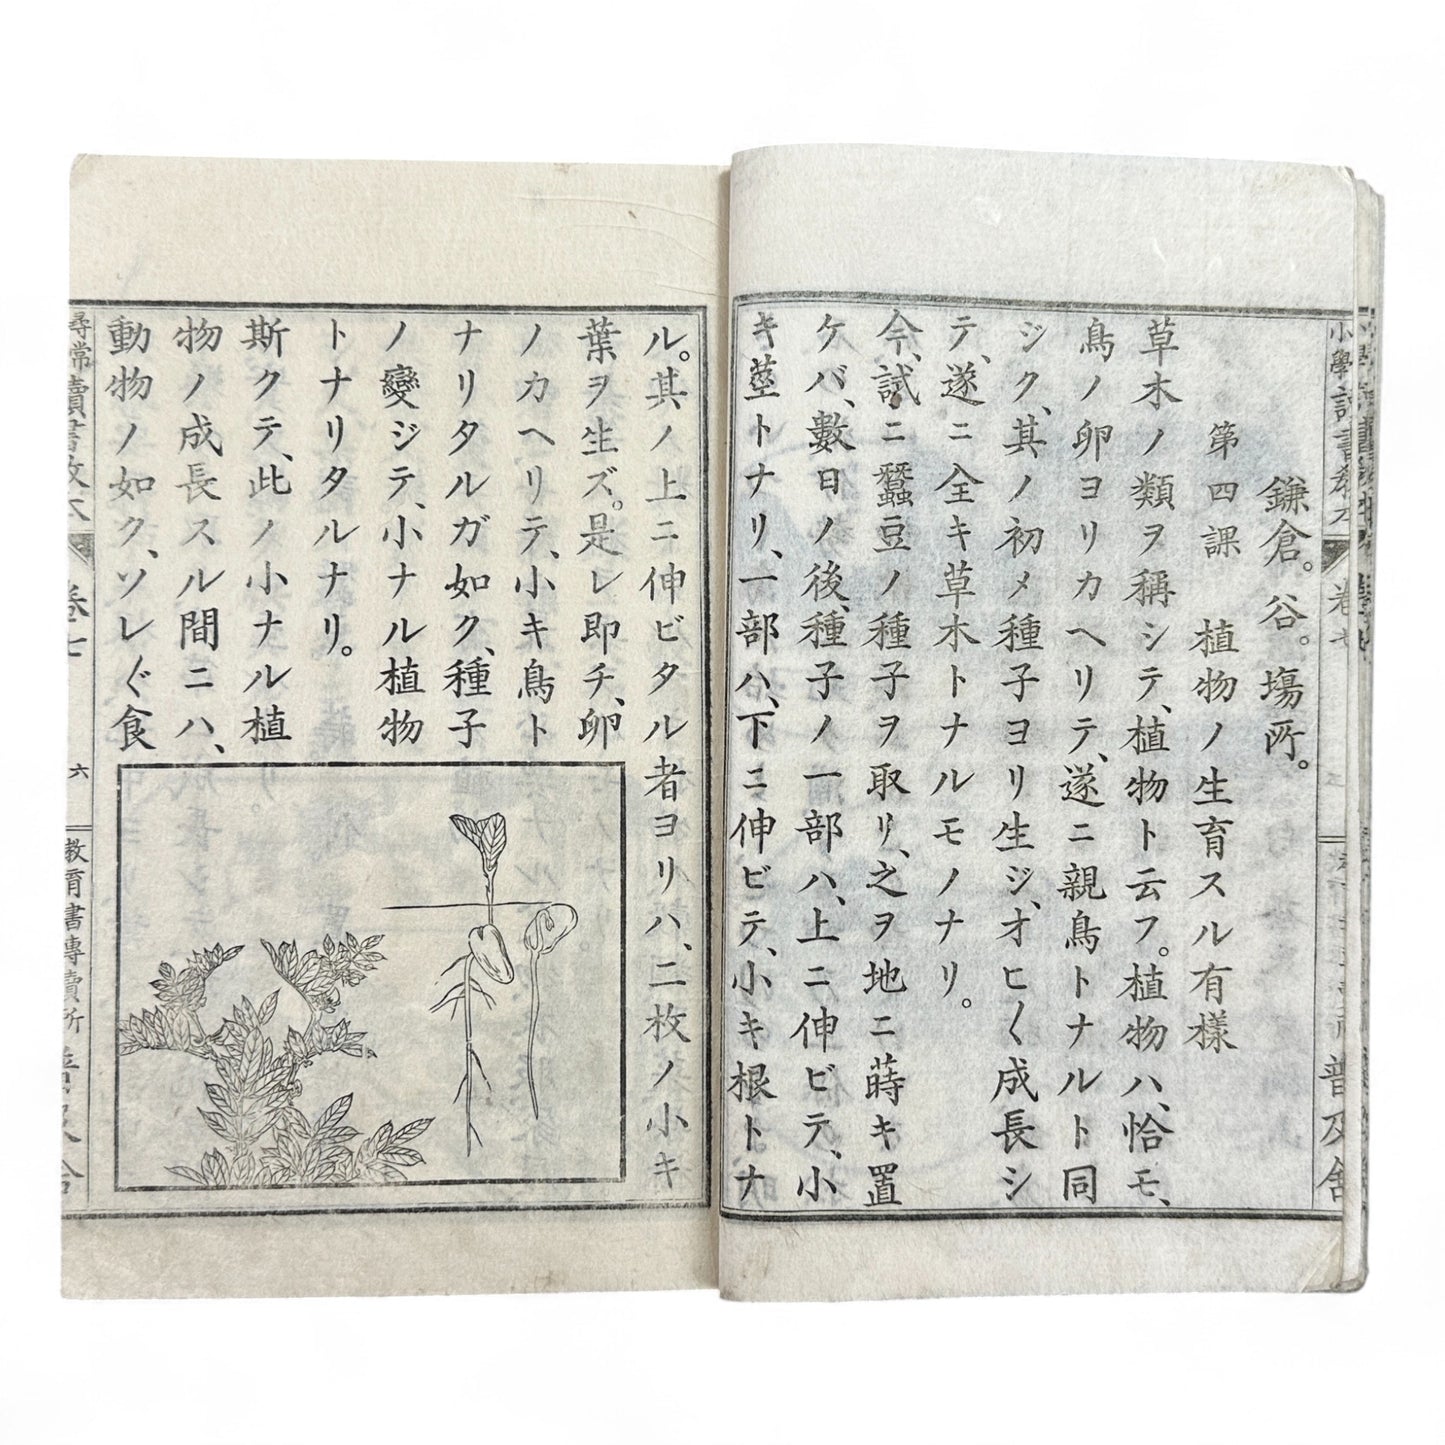 鎌倉。谷。塲所。
第四課　植物ノ生育スル有樣
草木ノ類ヲ稱シテ、植物ト云フ。植物ハ、恰モ、
鳥ノ卵ヨリカヘリテ、遂ニ親鳥トナルト同
ジク、其ノ初メ種子ヨリ生ジ、オヒ〱成長シ
テ、遂ニ全キ草木トナルモノナリ。
今、試ニ蠶豆ノ種子ヲ取リ、之ヲ地ニ蒔キ置
ケバ、數日ノ後、種子ノ一部ハ、上ニ伸ビテ、小
キ莖トナリ、一部ハ、下ニ伸ビテ、小キ根トナ
ル。其ノ上ニ伸ビタル者ヨリハ、二枚ノ小キ
葉ヲ生ズ。是レ即チ、卵
ノカヘリテ、小キ鳥ト
ナリタルガ如ク、種子
ノ變ジテ、小ナル植物
トナリタルナリ。
斯クテ、此ノ小ナル植
物ノ成長スル間ニハ、
動物ノ如ク、ソレ〲食
尋常讀書教本　卷七　六　教育書專賣所　普及舍